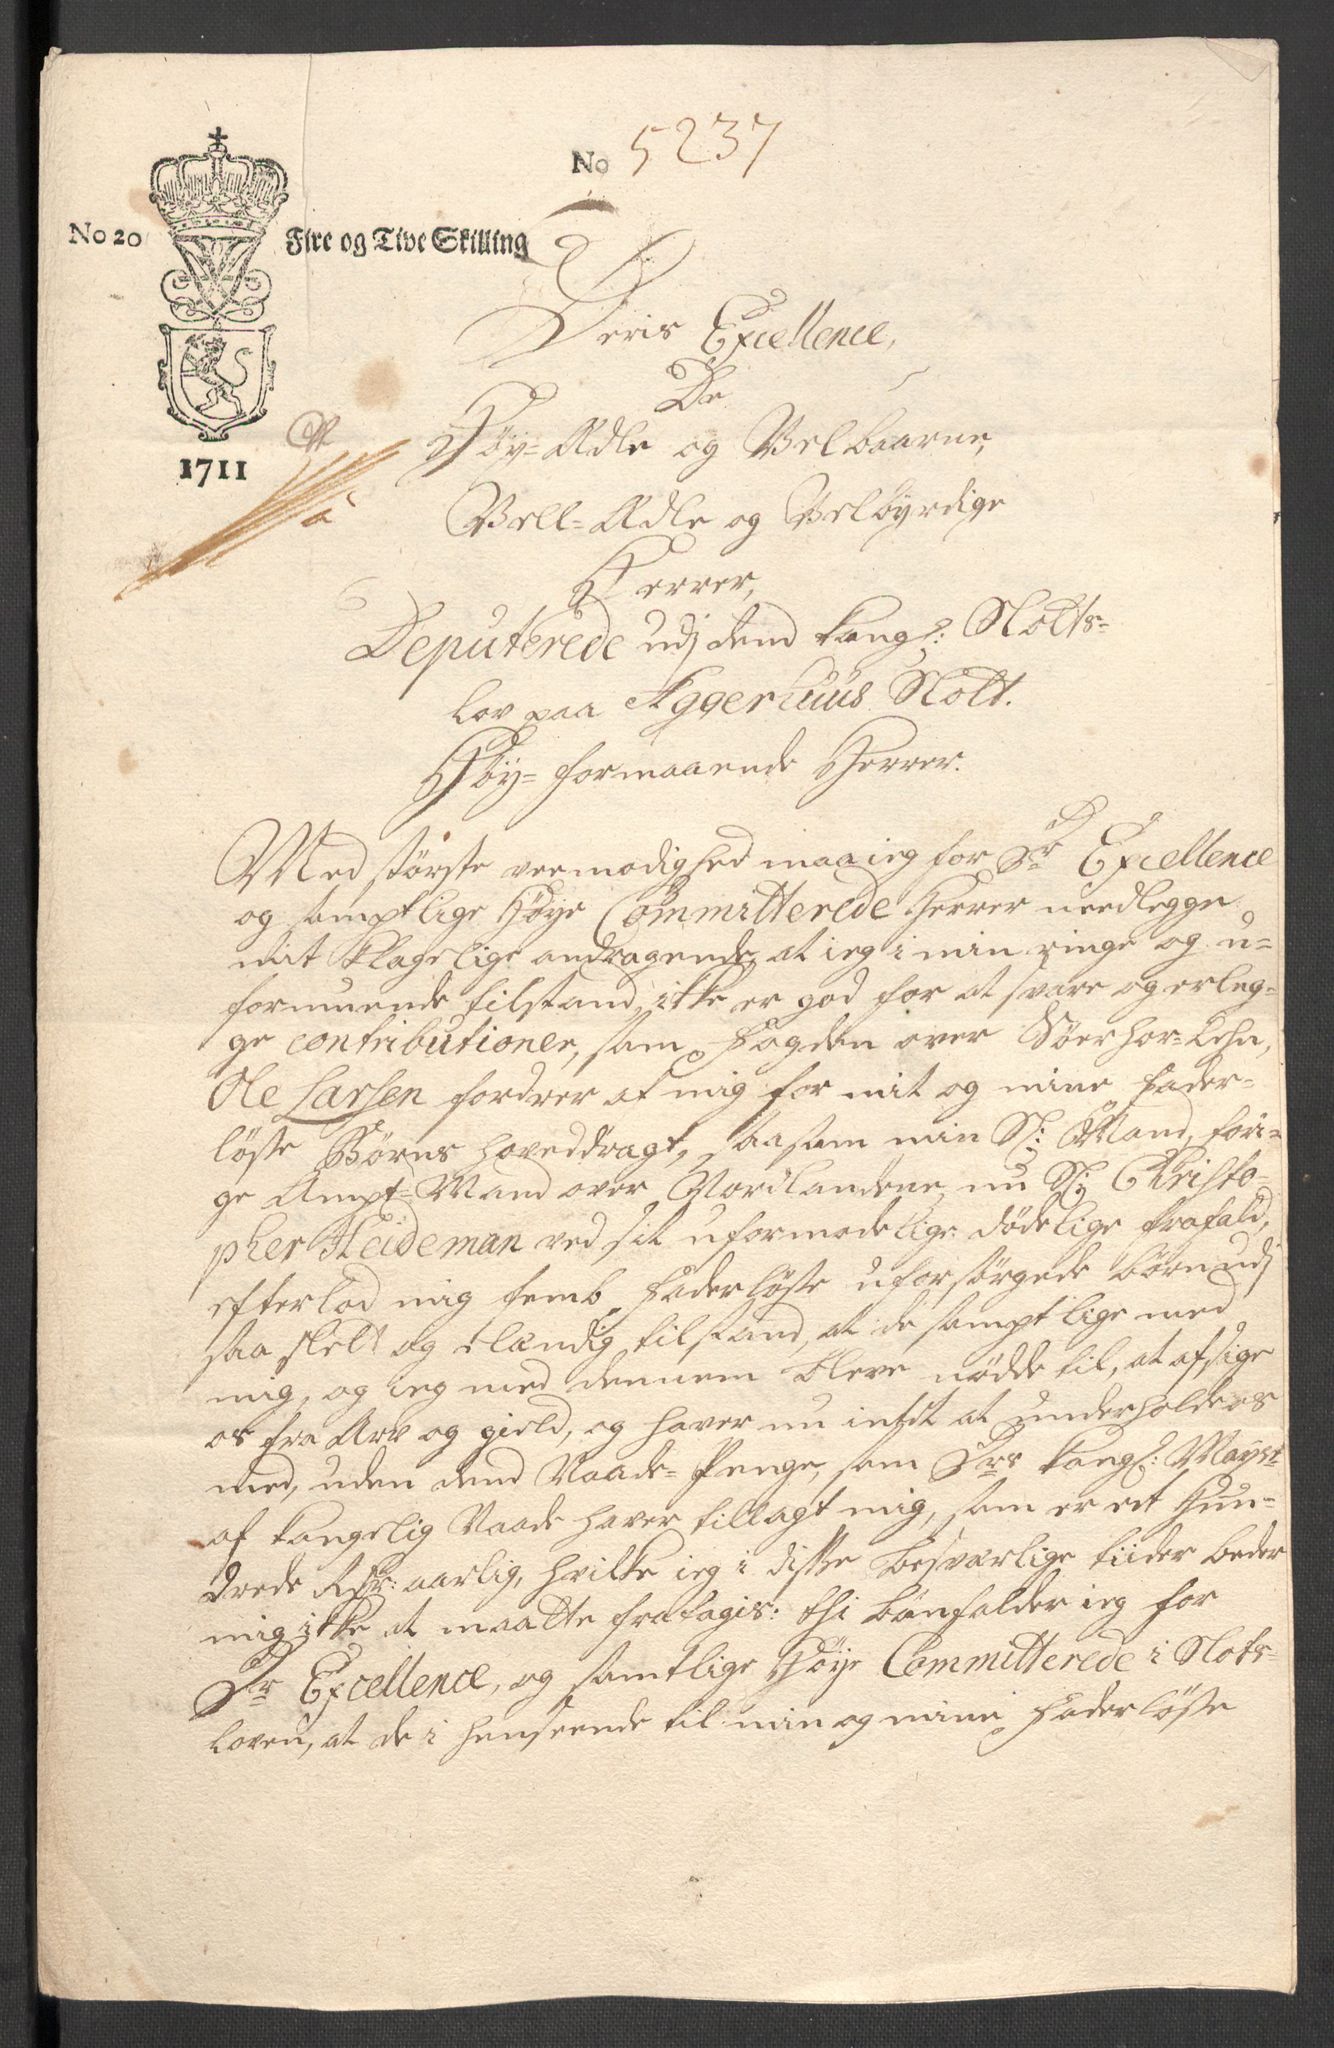 No 5237
No 20 Fire og Tive Skilling
1711
Deris Excellence,
De
Høy-Ædle og Velbaarne,
Vell-Ædle og Velbÿrdige
Herrer,
Deputerede udj dend kongl: Slotts-
lov paa Aggerhuus Slott.
Høy-formaaende Herrer.
Med största veemodighed maa ieg for Dr Excellence
og samptlige Höye Committerede Herrer needlegge
mit klagelige andragende, at ieg i min ringe og u-
formuende tilstand, ikke er god for at svare og erleg-
ge contributioner, som Fogden over Söer hor-Lehn,
Ole Larsen fordrer af mig for mit og mine Fader-
löse Börns hoveddragt, saasom min Sl: Mand, fori-
ge Ampt-Mand over Nordlandene, nu Sl: Christo-
pher Heideman ved sit uformodelige dödelige frafald,
efterlod mig femb Faderlöse uforsörgede börn udj
saa slett og elændig tilstand, at de samptlige med
mig, og ieg med dennem bleve nödde til, at afsige
os fra Arv og gield, og haver nu intet at underholde os
med, uden dend Naade-Penge, som Drs kongl: Mayst
af kongelig Naade haver tillagt mig, som er et Hun-
drede Rdr: aarlig, hvilke ieg i disse besværlige tiider beder
mig ikke at maatte fratagis: thi bönfalder ieg for
Dr Excellence, og samtlige Höye Committerede i Slots-
loven, at de i henseende til min og mine Faderlöse